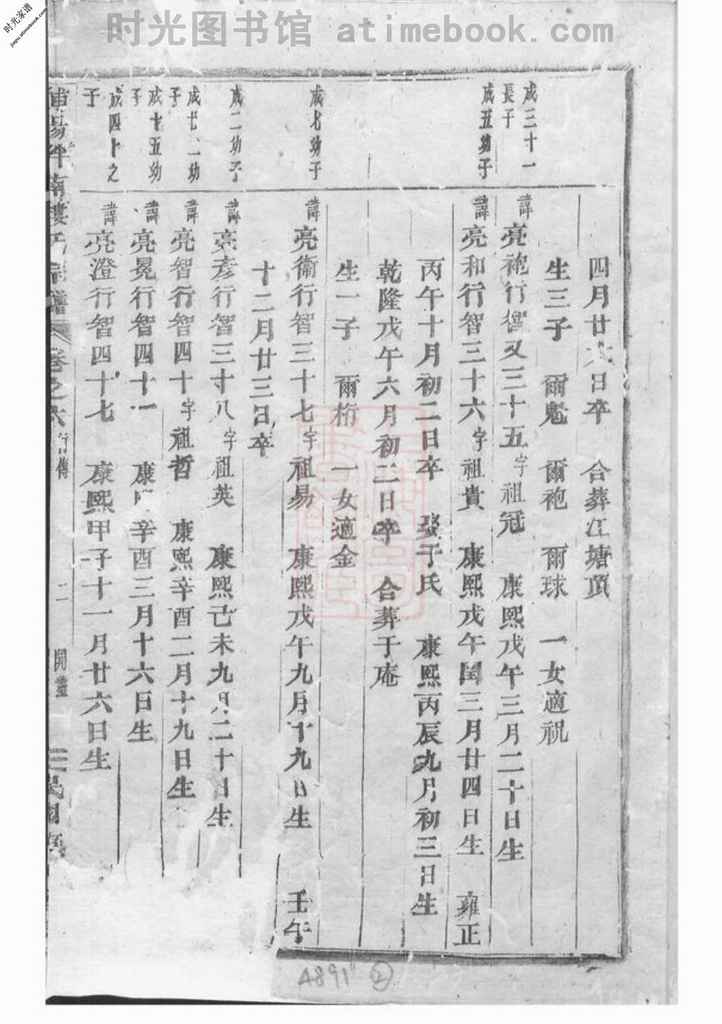 时光图书馆 atimebook.com
时光家谱
四月廿六日卒 合葬江塘頂
生三子 爾魁 爾袍 爾球 一女適祝
成三十一長子
諱亮袍行智又三十五字祖冠 康熙戊午三月二十日生
成五幼子
諱亮和行智三十六字祖貴 康熙戊午閏三月廿四日生 雍正
丙午十月初二日卒 娶于氏 康熙丙辰九月初三日生
乾隆戊午六月初二日卒 合葬于庵
生一子 爾桁 一女適金
成七幼子
諱亮衛行智三十七字祖易 康熙戊午九月十九日生 壬午
十二月廿三日卒
成二幼子
諱亮彥行智三十八字祖英 康熙己未九月二十日生
成廿二幼子
諱亮智行智四十字祖哲 康熙辛酉二月十九日生
成十五幼子
諱亮冕行智四十一 康 辛酉三月十六日生
成四十之子
諱亮澄行智四十七 康熙甲子十一月廿六日生
南樓氏宗譜 卷之六 行傳 二
4891 ②